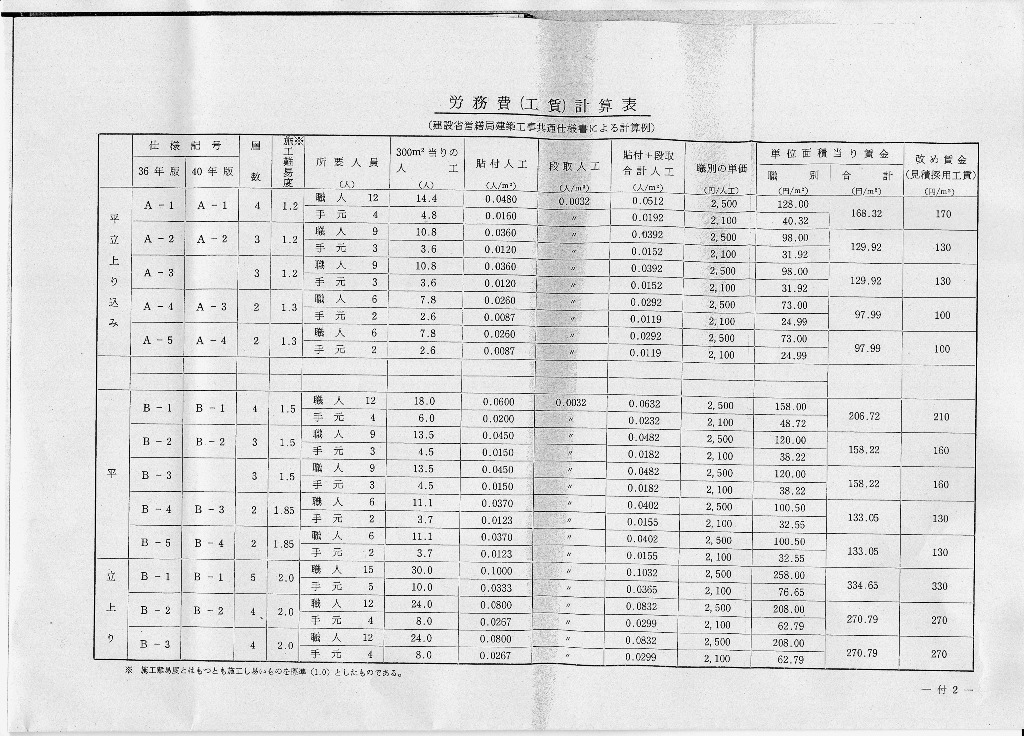 労務費(工賃)計算表
(建設省営繕局建築工事共通仕様書による計算例)
仕様記号 層数 施工難易度※ 所要人員 (人) 300m²当りの人工 (人) 貼付人工 (人/m²) 段取人工 (人/m²) 貼付+段取合計人工 (人/m²) 職別の単価 (円/人工) 単位面積当り賃金 改め賃金 (見積採用工賃) (円/m²)
36年版 40年版 職別 (円/m²) 合計 (円/m²)
平立上り込み
A-1 A-1 4 1.2 職人 12 14.4 0.0480 0.0032 0.0512 2,500 128.00 168.32 170
手元 4 4.8 0.0160 〃 0.0192 2,100 40.32
A-2 A-2 3 1.2 職人 9 10.8 0.0360 〃 0.0392 2,500 98.00 129.92 130
手元 3 3.6 0.0120 〃 0.0152 2,100 31.92
A-3 3 1.2 職人 9 10.8 0.0360 〃 0.0392 2,500 98.00 129.92 130
手元 3 3.6 0.0120 〃 0.0152 2,100 31.92
A-4 A-3 2 1.3 職人 6 7.8 0.0260 〃 0.0292 2,500 73.00 97.99 100
手元 2 2.6 0.0087 〃 0.0119 2,100 24.99
A-5 A-4 2 1.3 職人 6 7.8 0.0260 〃 0.0292 2,500 73.00 97.99 100
手元 2 2.6 0.0087 〃 0.0119 2,100 24.99
平
B-1 B-1 4 1.5 職人 12 18.0 0.0600 0.0032 0.0632 2,500 158.00 206.72 210
手元 4 6.0 0.0200 〃 0.0232 2,100 48.72
B-2 B-2 3 1.5 職人 9 13.5 0.0450 〃 0.0482 2,500 120.00 158.22 160
手元 3 4.5 0.0150 〃 0.0182 2,100 38.22
B-3 3 1.5 職人 9 13.5 0.0450 〃 0.0482 2,500 120.00 158.22 160
手元 3 4.5 0.0150 〃 0.0182 2,100 38.22
B-4 B-3 2 1.85 職人 6 11.1 0.0370 〃 0.0402 2,500 100.50 133.05 130
手元 2 3.7 0.0123 〃 0.0155 2,100 32.55
B-5 B-4 2 1.85 職人 6 11.1 0.0370 〃 0.0402 2,500 100.50 133.05 130
手元 2 3.7 0.0123 〃 0.0155 2,100 32.55
立上り
B-1 B-1 5 2.0 職人 15 30.0 0.1000 〃 0.1032 2,500 258.00 334.65 330
手元 5 10.0 0.0333 〃 0.0365 2,100 76.65
B-2 B-2 4 2.0 職人 12 24.0 0.0800 〃 0.0832 2,500 208.00 270.79 270
手元 4 8.0 0.0267 〃 0.0299 2,100 62.79
B-3 4 2.0 職人 12 24.0 0.0800 〃 0.0832 2,500 208.00 270.79 270
手元 4 8.0 0.0267 〃 0.0299 2,100 62.79
※ 施工難易度とはもつとも施工し易いものを標準(1.0)としたものである。
— 付2 —